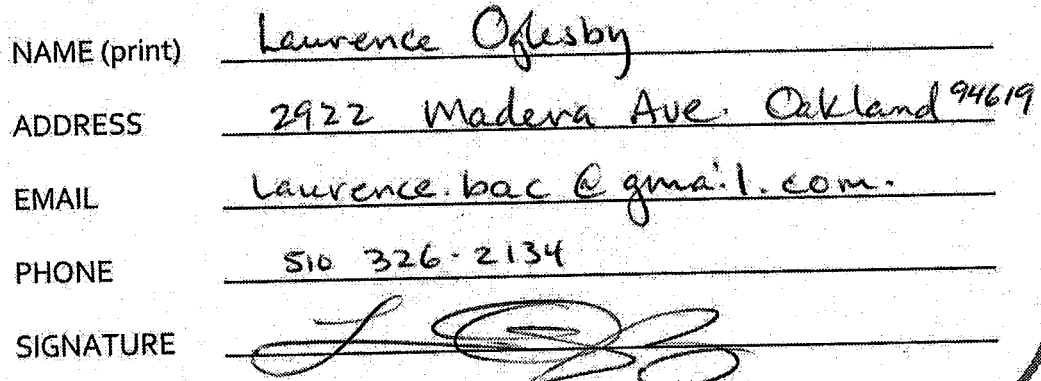 NAME (print) Laurence Oglesby
ADDRESS 2922 Madera Ave. Oakland 94619
EMAIL laurence.bac@gmail.com.
PHONE 510 326-2134
SIGNATURE